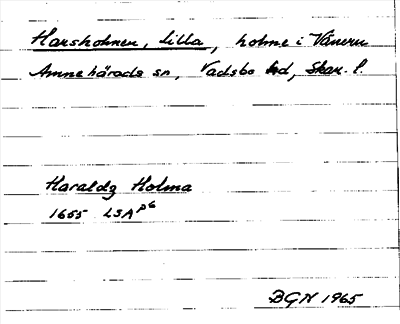 Harsholmen, lilla, holme i Vänern
Amnehärads sn, Vadsbo hd, Skar. l.
Haraldz Holma
1655 LSA p6
BGN 1965